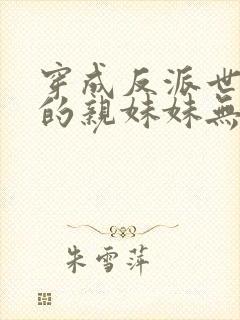 穿成反派世
的親妹妹無
朱雪萍